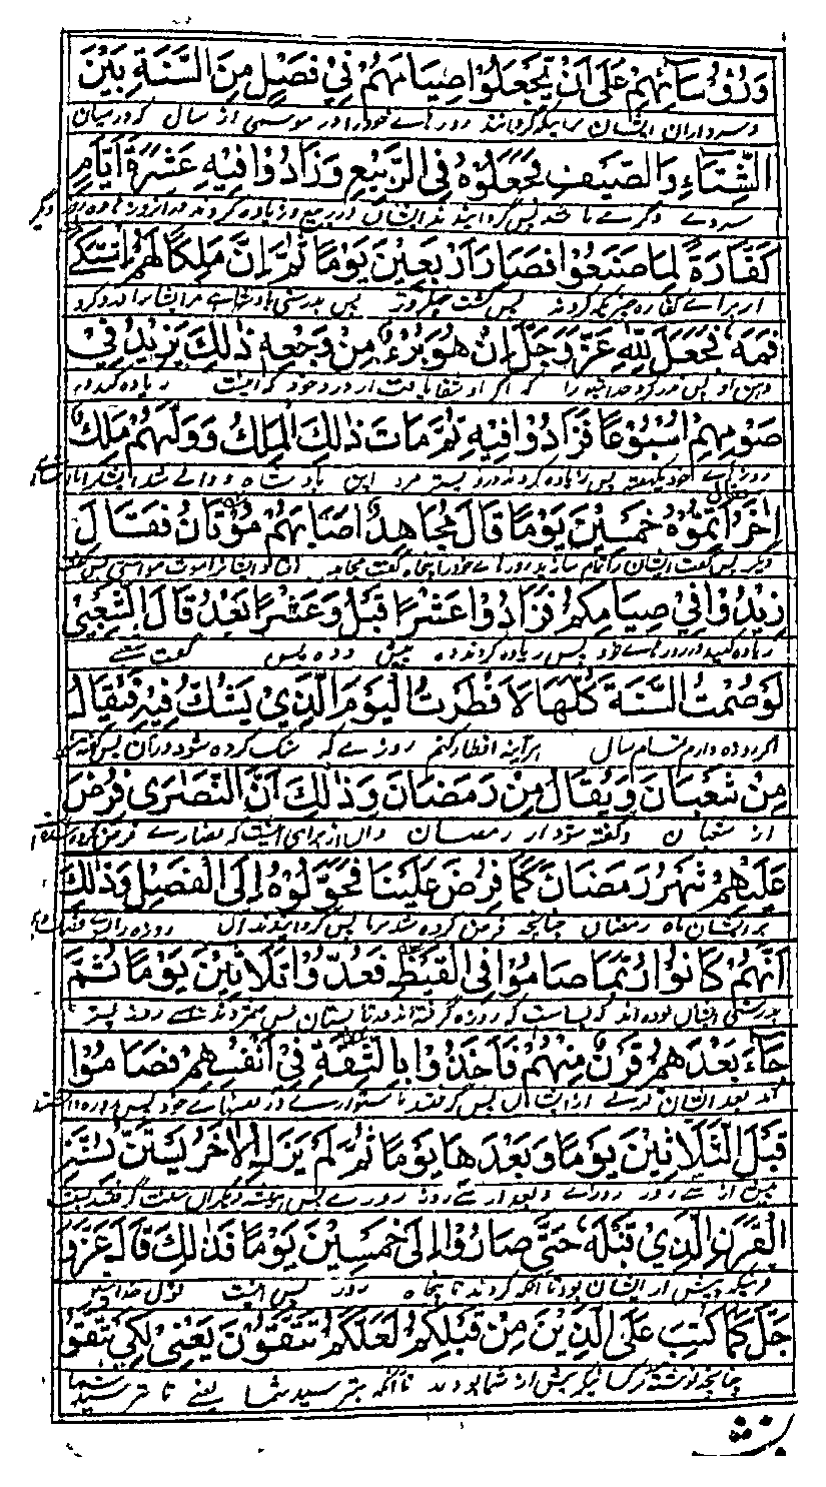 وَرُؤُسَآئِهِمْ عَلَى اَنْ يَّجْعَلُوْا صِيَامَهُمْ فِيْ فَصْلٍ مِنَ السَّنَةِ بَيْنَ
و سرداران ایشان برایکه گردانند روزهاے خود را در موسمی از سال که درمیان
الشِّتَاءِ وَالصَّيْفِ فَجَعَلُوْهُ فِي الرَّبِيْعِ وَزَادُوْا فِيْهِ عَشْرَةَ اَيَّامٍ
سردے و گرمے باشد پس گردانیدند ایشان در ربیع و زیاده کردند در آن روز ها ده روز دیگر
كَفَّارَةً لِمَا صَنَعُوْا فَصَارَ اَرْبَعِيْنَ يَوْمًا ثُمَّ اِنَّ مَلِكًا لَهُمْ اِشْتَكٰى
از براے کفاره چیزیکه کردند پس گشت چهل روز پس بدرستی بادشاہے مر ایشانرا درد کرد
فَمَهٗ فَجَعَلَ لِلّٰهِ عَزَّ وَجَلَّ اِنْ هُوَ بَرُءَ مِنْ وَجَعِهٖ ذٰلِكَ يَزِيْدُ فِيْ
دهن او پس نذر کرد خدایتعالی را که اگر او شفا یافت از درد خود که اینست زیاده کند در
صَوْمِهِمْ اُسْبُوْعًا فَزَادُوْا فِيْهِ ثُمَّ مَاتَ ذٰلِكَ الْمَلِكُ وَوَلَّهُمْ مَلِكٌ
روزهاے خود یکهفته پس زیاده کردند در و پستر مرد این بادشاه و والے شد ایشانرا بادشاہے
اٰخَرُ فَقَالَ اَتِمُّوْهُ خَمْسِيْنَ يَوْمًا قَالَ مُجَاهِدٌ اَصَابَهُمْ مُؤْتَانٌ فَقَالَ
دیگر پس گفت ایشان را تمام سازید روزهاے خود را پنجاه گفت مجاهد
زِيْدُوْا فِيْ صِيَامِكُمْ فَزَادُوْا عَشْرًا قَبْلُ وَعَشْرًا بَعْدُ قَالَ الشَّعْبِيُّ
زیاده کنید در روزهاے خود پس زیاده کردند ده پیش و ده پس گفت شعبے
لَوْ صُمْتُ السَّنَةَ كُلَّهَا لَاَفْطَرْتُ الْيَوْمَ الَّذِيْ يُشَكُّ فِيْهِ فَيُقَالُ
اگر روزه دارم تمام سال هر آینه افطار کنم روزے که شک کرده شود در آن پس گفته شود
مِنْ شَعْبَانَ وَيُقَالُ مِنْ رَمَضَانَ وَذٰلِكَ اَنَّ النَّصٰرٰى فُرِضَ
از شعبان و گفته شود از رمضان و آن از برای اینست که نصارے فرض کرده شد
عَلَيْهِمْ شَهْرُ رَمَضَانَ كَمَا فُرِضَ عَلَيْنَا فَحَوَّلُوْهُ اِلَى الْفَصْلِ وَذٰلِكَ
بر ایشان ماه رمضان چنانچه فرض کرده شد بر ما پس گردانیدند آن روزه را بسوے فصل
اَنَّهُمْ كَانُوْا رُبَمَا صَامُوْا فِي الْقَيْظِ فَعَدُّوْا ثَلَاثِيْنَ يَوْمًا ثُمَّ
بدرستی ایشان بوده اند که بسا است که روزه گرفته اند در تابستان پس شمردند سے روز پستر
جَآءَ بَعْدَهُمْ قَرْنٌ مِنْهُمْ فَاَخَذُوْا بِالثِّقَةِ فِيْ اَنْفُسِهِمْ فَصَامُوْا
بعد ایشان قرنے از ایشان پس گرفتند استوارے در نفسهاے خود پس روزه داشتند
قَبْلَ الثَّلَاثِيْنَ يَوْمًا وَبَعْدَهَا يَوْمًا ثُمَّ لَمْ يَزَلِ الْاٰخَرُ يَسْتَنُّ بِسُنَّةِ
پیش از سے روز روزے و بعد از سے روز روزے پس همیشه دیگران سنت گرفتند بسنت
الْقَرْنِ الَّذِيْ قَبْلَهٗ حَتّٰى صَارُوْا اِلٰى خَمْسِيْنَ يَوْمًا فَذٰلِكَ قَوْلُهٗ عَزَّ وَ
قرنیکه پیش از ایشان بود تا آنکه گردیدند تا پنجاه روز پس اینست قول خدایتعالی
جَلَّ كَمَا كُتِبَ عَلَى الَّذِيْنَ مِنْ قَبْلِكُمْ لَعَلَّكُمْ تَتَّقُوْنَ يَعْنِيْ لِكَيْ تَتَّقُوْا
چنانچه نوشته شد بر کسانیکه پیش از شما بودند تا آنکه بترسید شما یعنے تا بترسید شما